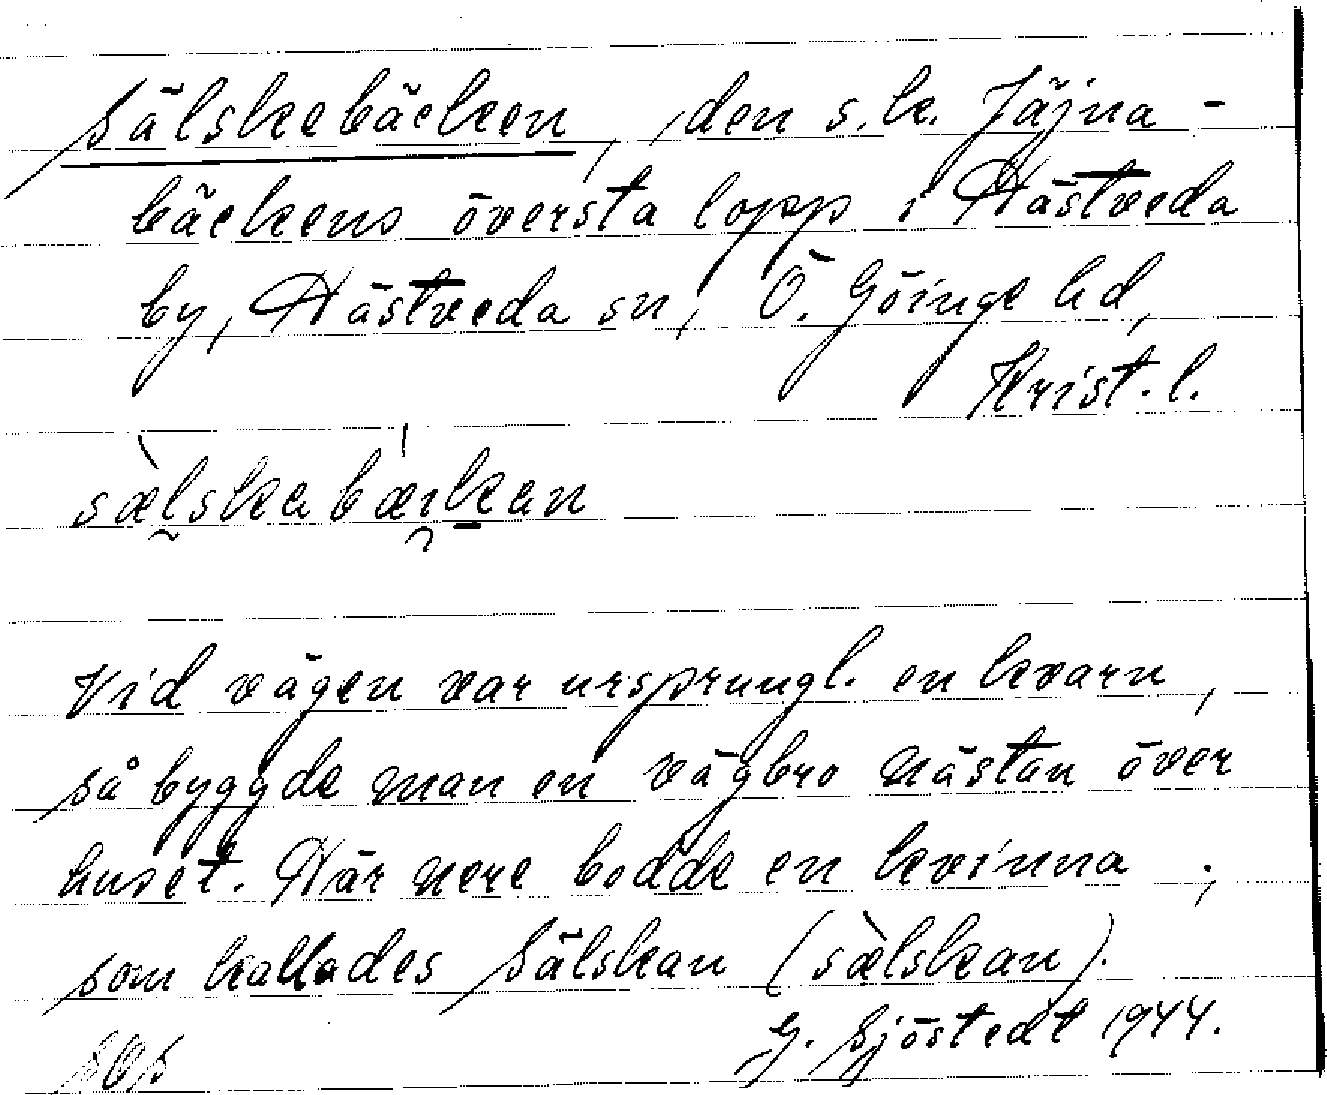 Sälskebäcken, den s.k. Jäjna-
bäckens översta lopp i Hästveda
by, Hästveda sn, Ö. Göinge hd,
Krist. l.
sæ̀lskabæıkan
Vid vägen var ursprungl. en kvarn,
så byggde man en vägbro nästan över
huset. Där nere bodde en kvinna,
som kallades Sälskan (sæ̀lskan).
G. Sjöstedt 1944.
SOS